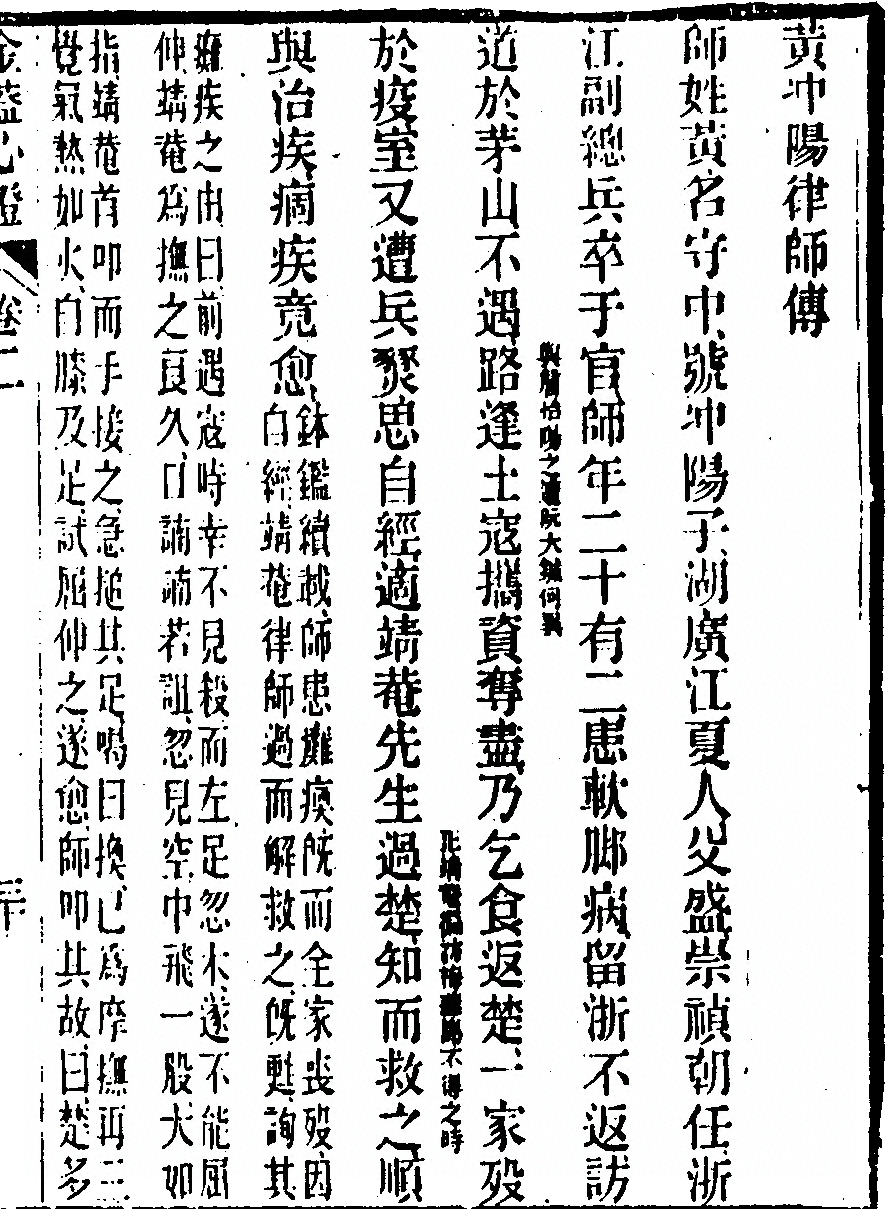 黃冲陽律師傳
師姓黃名守中、號冲陽子、湖廣江夏人、父盛、崇禎朝任浙
江副總兵卒于官師年二十有二患軟脚病留浙不返訪
與陶怡陽之遇阮大鋮何異
道於茅山不遇、路逢土寇攜資奪盡乃乞食返楚、一家歿
於疫室又遭兵燹思自經適靖菴先生過楚、知而救之、順
與治疾、痼疾竟愈、
鉢鑑續載、師患癱瘓旣而全家喪歿、因
自經、靖菴律師過而解救之、旣甦、詢其
癱疾之由曰、前遇寇時幸不見殺、而左足忽木、遂不能屈
伸靖菴爲撫之良久、口諵諵若詛、忽見空中飛一股大如
指、靖菴首叩而手接之、急搥其足、喝曰換、已爲摩撫再三
覺氣熱如火、自膝及足、試屈伸之、遂愈、師叩其故、曰楚多
金蓋心燈
卷二
三十